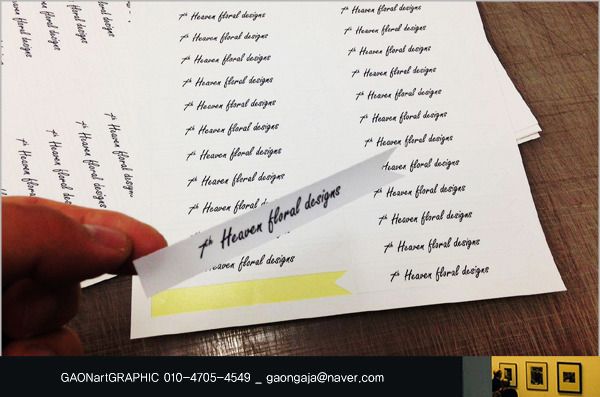 7th Heaven floral designs
7th Heaven floral designs
7th Heaven floral designs
7th Heaven floral designs
7th Heaven floral designs
7th Heaven floral designs
7th Heaven floral designs
7th Heaven floral designs
7th Heaven
floral designs
7th Heaven floral designs
7th Heaven floral designs
7th Heaven floral designs
7th Heaven floral designs
7th Heaven floral designs
7th Heaven floral designs
7th Heaven floral designs
Heaven floral designs
7th Heaven floral designs
7th Heaven floral designs
7th Heaven floral designs
7th Heaven floral designs
7th Heaven floral designs
7th Heaven floral
7th Heaven floral
7th Heaven floral designs
7th Heaven floral designs
GAONartGRAPHIC 010-4705-4549 _ gaongaja@naver.com